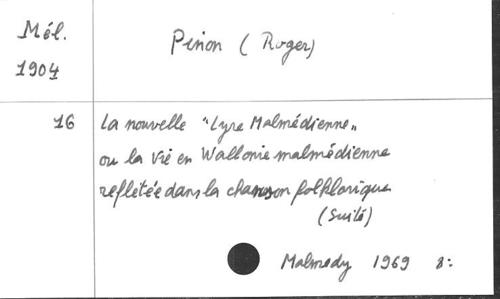 Mél.
1904
Pinon ( Roger)
16
La nouvelle "Lyre Malmédienne"
ou la vie en Wallonie malmédienne
reflétée dans la chanson folklorique
(Suite)
Malmedy 1969 8: